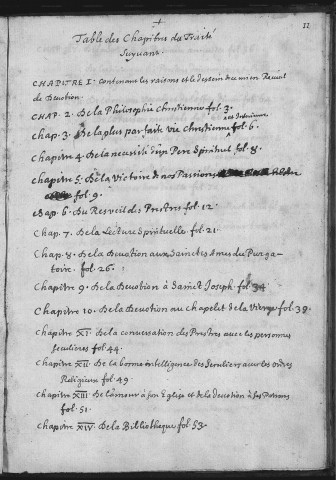 +
11
Table des Chapitres du Traité
Suyuant.
CHAPITRE I. contenant les raisons et le dessein de ce Recueil
de Deuotion.
CHAP. 2. De la Philosophie Chrestienne fol. 3.
chap. 3. De la plus parfaite vie Chrestienne et Interieure fol. 6.
Chapitre 4. De la necessité d'un Pere Spirituel fol. 8.
Chapitre 5. De la Victoire de nos Passions
fol. 9.
Chap. 6. Du Recueil des Prestres fol. 12.
Chap. 7. De la Lecture Spirituelle fol. 21.
Chap. 8. De la Deuotion aux Sainctes Ames du Purga-
toire. fol. 26.
Chapitre 9. De la Deuotion à Sainct Joseph fol 34
Chapitre 10. De la Deuotion au Chapelet de la Vierge fol. 39.
Chapitre XI. De la conuersation des Prestres auec les personnes
seculieres fol 44.
Chapitre XII. De la bonne intelligence des seculiers auec les ordres
Religieux fol. 49
Chapitre XIII De l'amour à son Eglise et de la deuotion à ses Patrons
fol. 51.
Chapitre XIV. De la Bibliotheque fol. 53.